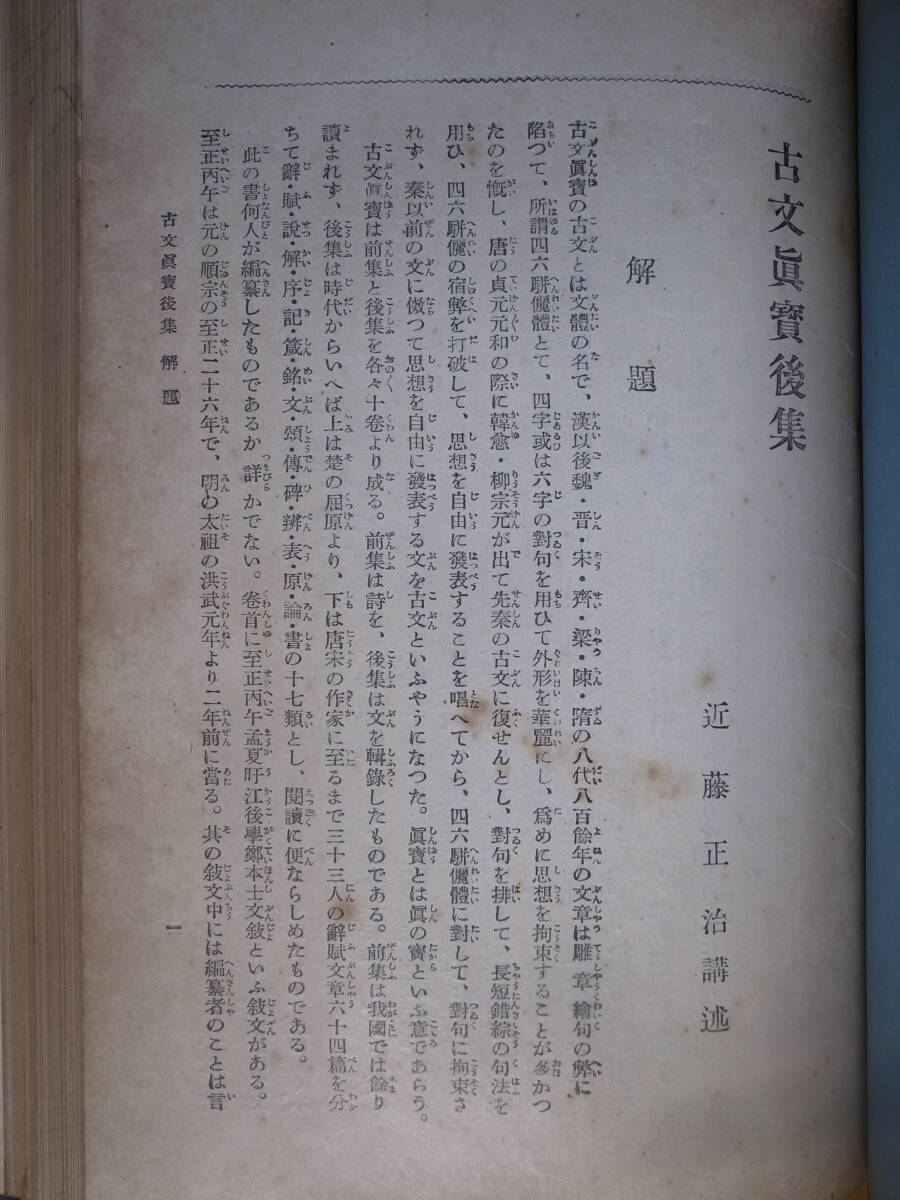 古文眞寶後集
近藤正治講述
解題
古文眞寶の古文とは文體の名で、漢以後魏・晋・宋・齊・梁・陳・隋の八代八百餘年の文章は雕章繪句の弊に
陷つて、所謂四六騈儷體とて、四字或は六字の對句を用ひて外形を華麗にし、爲めに思想を拘束することが多かつ
たのを慨し、唐の貞元元和の際に韓愈・柳宗元が出て先秦の古文に復せんとし、對句を排して、長短錯綜の句法を
用ひ、四六騈儷の宿弊を打破して、思想を自由に發表することを唱へてから、四六騈儷體に對して、對句に拘束さ
れず、秦以前の文に倣つて思想を自由に發表する文を古文といふやうになつた。眞寶とは眞の寳といふ意であらう。
古文眞寶は前集と後集を各々十卷より成る。前集は詩を、後集は文を輯錄したものである。前集は我國では餘り
讀まれず、後集は時代からいへば上は楚の屈原より、下は唐宋の作家に至るまで三十三人の辭賦文章六十四篇を分
ちて辭・賦・說・解・序・記・箴・銘・文・頌・傳・碑・辨・表・原・論・書の十七類とし、閱讀に便ならしめたものである。
此の書何人が編纂したものであるか詳かでない。卷首に至正丙午孟夏旴江後學鄭本士文敍といふ敍文がある。
至正丙午は元の順宗の至正二十六年で、明の太祖の洪武元年より二年前に當る。其の敍文中には編纂者のことは言
古文眞寶後集 解題
一